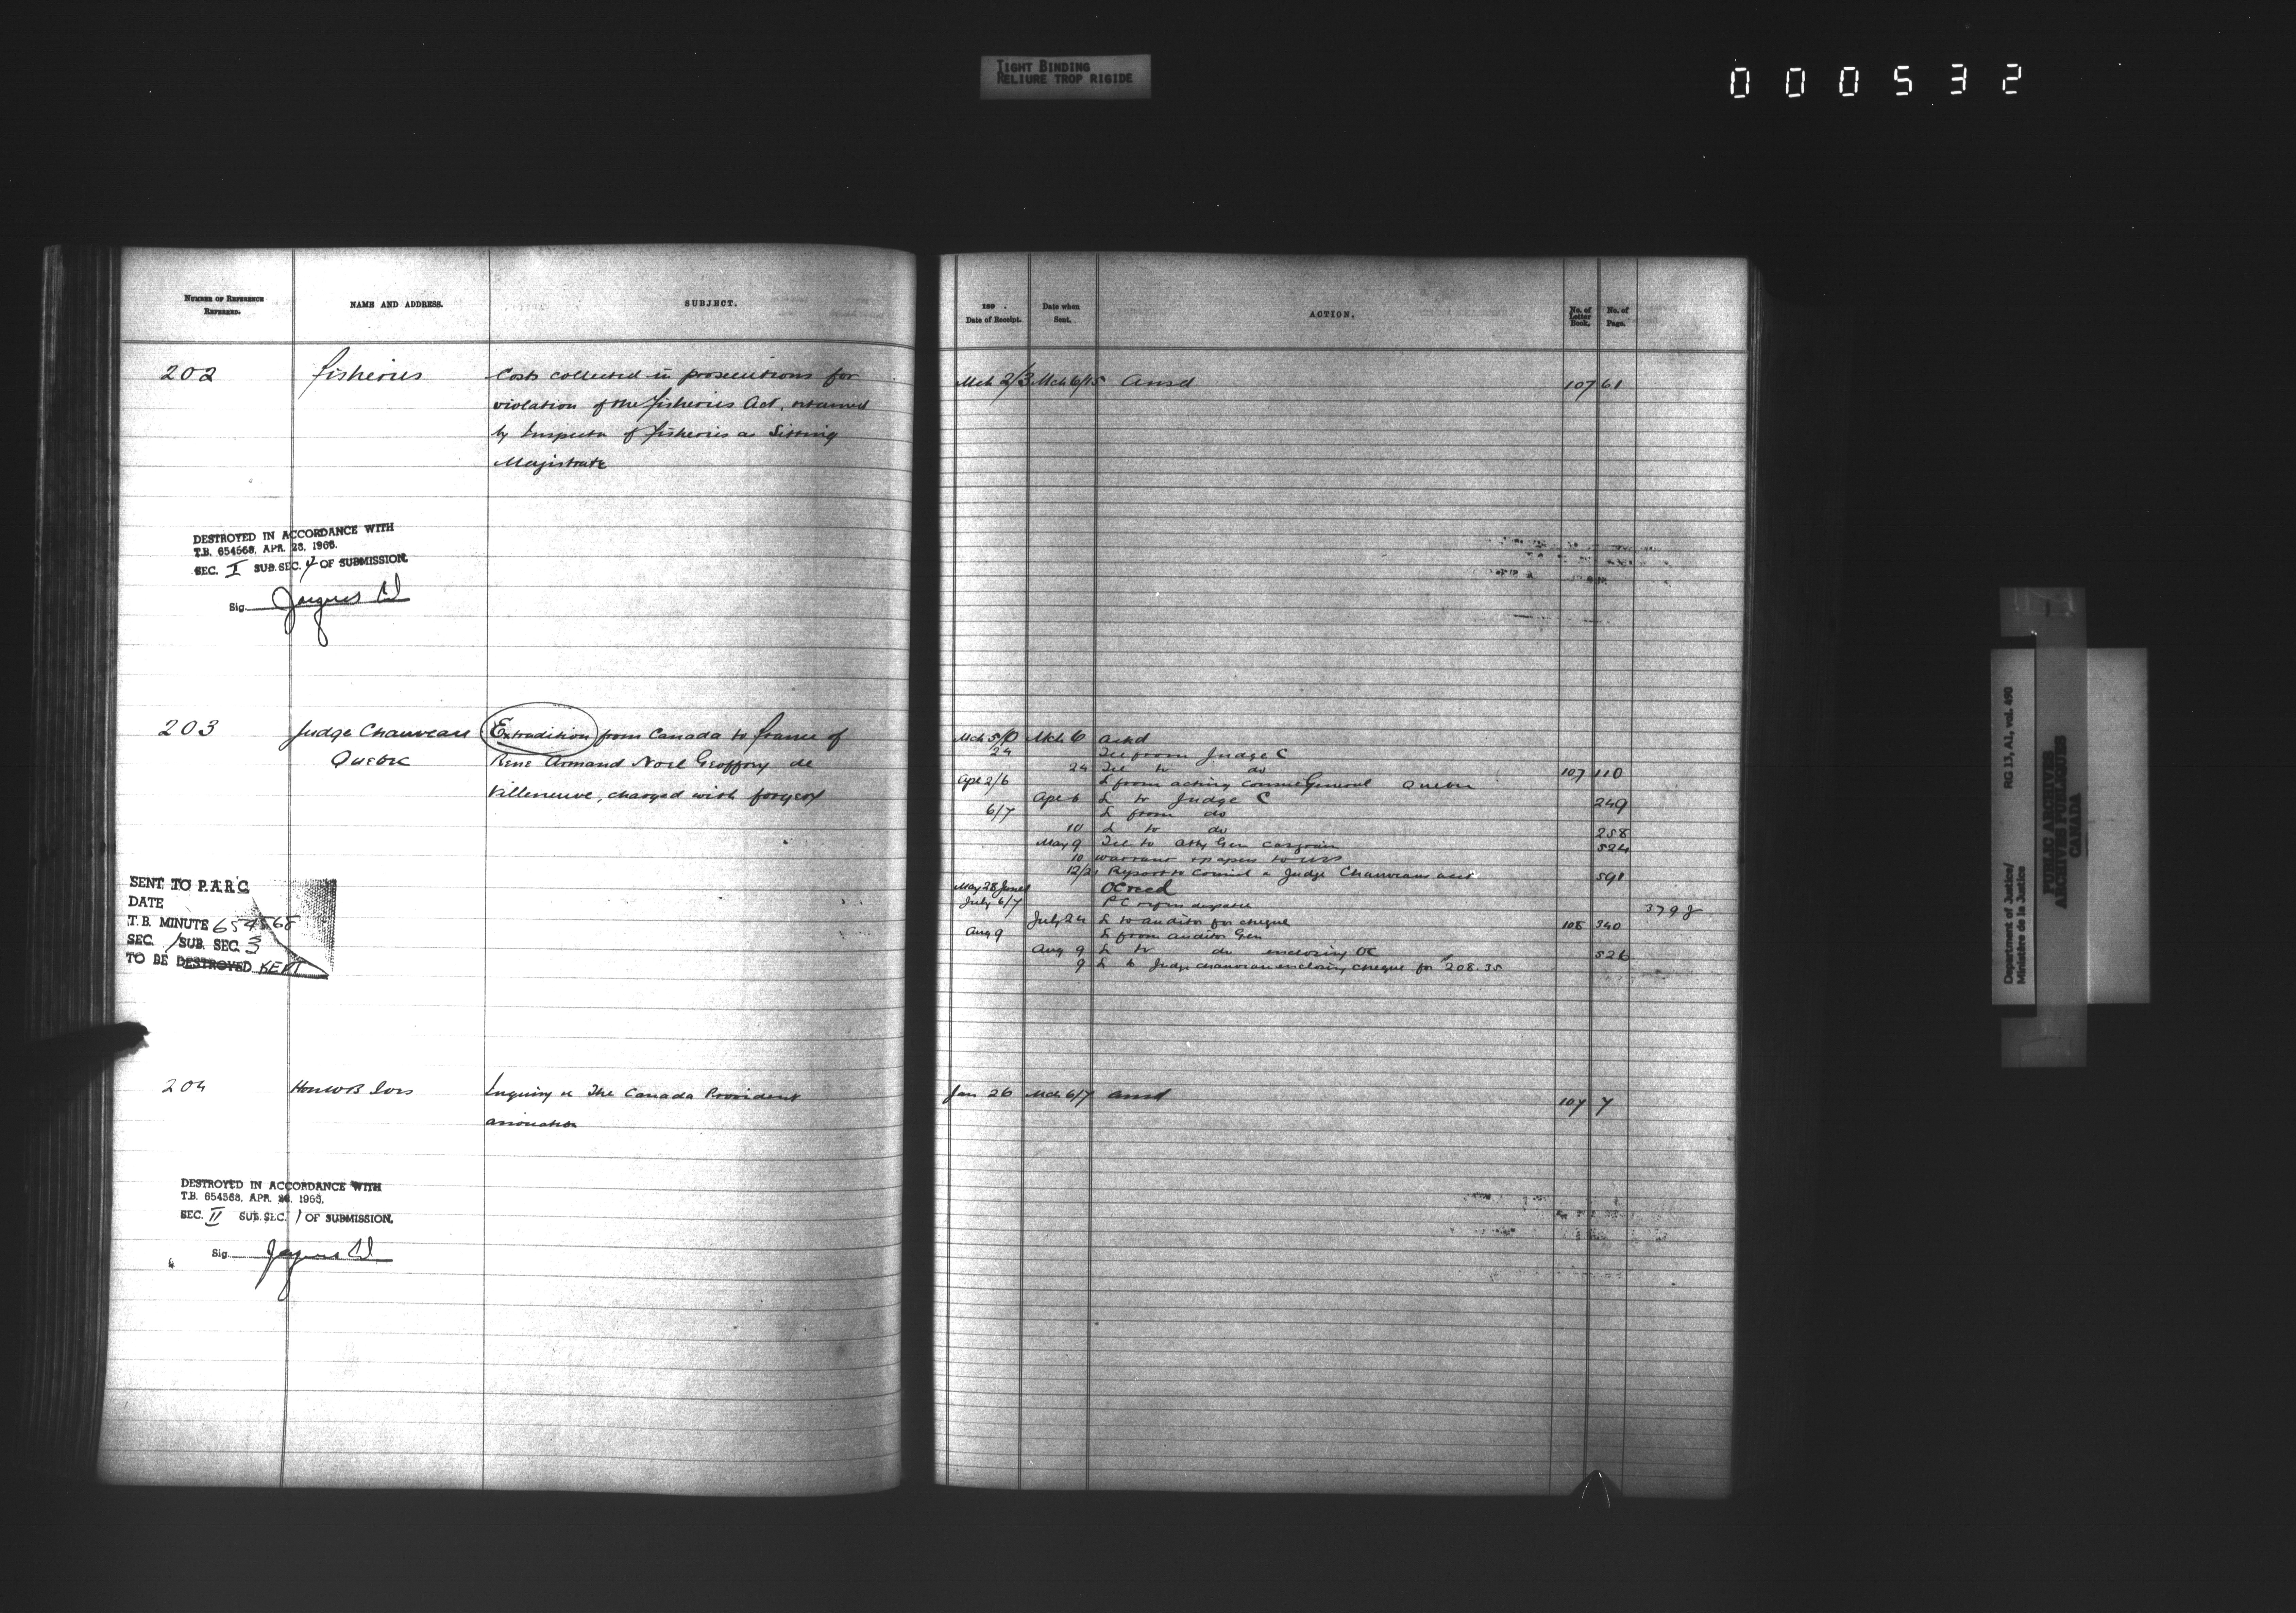 TIGHT BINDING
RELIURE TROP RIGIDE
000532
NUMBER OF REFERENCE
REFERRED.
NAME AND ADDRESS.
SUBJECT.
189 .
Date of Receipt.
Date when
Sent.
ACTION.
No. of
Letter
Book.
No. of
Page.
202 Fisheries Costs collected in prosecutions for Mch 2/3 Mch 6/15 Ansd 107 61
violation of the Fisheries Act, retained
by Inspector of Fisheries as Sitting
Magistrate
DESTROYED IN ACCORDANCE WITH
T.B. 654568, APR. 23. 1966.
SEC. I SUB. SEC. 4 OF SUBMISSION.
Sig. Jacques
203 Judge Chauveau Extradition from Canada to France of
Quebec Rene Armand Noel Geoffroy de
Villeneuve, charged with forgery
Mch 5/ Mch 6 ackd
24 Tel from Judge C
24 Tel to do 107 110
Apl 2/6 L from acting Consul General Quebec
Apl 6 L to Judge C 249
6/7 L from do
10 L to do 258
May 9 Tel to Atty Gen Casgrain 524
10 warrant & papers to
12/21 Report to Council re Judge Chauveau's acct 591
May 28 June 1 OC recd
July 6/7 PC despatch 379 J
July 24 L to auditor for cheque 108 340
Aug 9 L from auditor Gen
Aug 9 L to do enclosing OC 526
9 L to Judge Chauveau enclosing cheque for $208.35
SENT TO P.A.R.C.
DATE
T.B. MINUTE 654568
SEC. 1 SUB. SEC. 3
TO BE DESTROYED KEPT
204 Hon W B Ives Enquiry re The Canada Provident Jan 26 Mch 6/7 ansd 107 7
association
DESTROYED IN ACCORDANCE WITH
T.B. 654568, APR. 1963.
SEC. II SUB. SEC. 1 OF SUBMISSION.
Sig. Jacques
Department of Justice/ RG 13, A1, vol. 490
Ministère de la Justice
PUBLIC ARCHIVES
ARCHIVES PUBLIQUES
CANADA